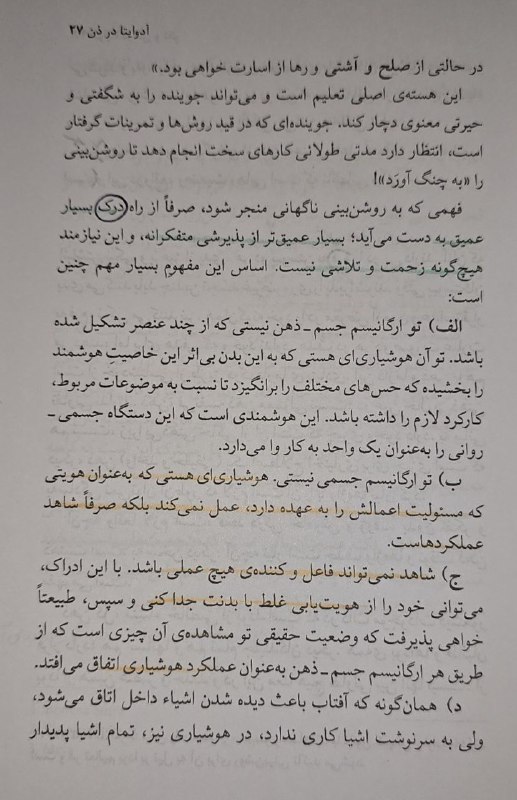 آدوایتا در ذن ۲۷
در حالتی از صلح و آشتی و رها از اسارت خواهی بود.»
این هسته‌ی اصلی تعلیم است و می‌تواند جوینده را به شگفتی و
حیرتی معنوی دچار کند. جوینده‌ای که در قید روش‌ها و تمرینات گرفتار
است، انتظار دارد مدتی طولانی کارهای سخت انجام دهد تا روشن‌بینی
را «به چنگ آورَد»!
فهمی که به روشن‌بینی ناگهانی منجر شود، صرفاً از راه درک بسیار
عمیق به دست می‌آید؛ بسیار عمیق‌تر از پذیرشی متفکرانه، و این نیازمند
هیچ‌گونه زحمت و تلاشی نیست. اساس این مفهوم بسیار مهم چنین
است:
الف) تو ارگانیسم جسم ـ ذهن نیستی که از چند عنصر تشکیل شده
باشد. تو آن هوشیاری‌ای هستی که به این بدن بی‌اثر این خاصیتِ هوشمند
را بخشیده که حس‌های مختلف را برانگیزد تا نسبت به موضوعات مربوط،
کارکرد لازم را داشته باشد. این هوشمندی است که این دستگاه جسمی ـ
روانی را به‌عنوان یک واحد به کار وا می‌دارد.
ب) تو ارگانیسم جسمی نیستی. هوشیاری‌ای هستی که به‌عنوان هویتی
که مسئولیت اعمالش را به عهده دارد، عمل نمی‌کند بلکه صرفاً شاهد
عملکردهاست.
ج) شاهد نمی‌تواند فاعل و کننده‌ی هیچ عملی باشد. با این ادراک،
می‌توانی خود را از هویت‌یابی غلط با بدنت جدا کنی و سپس، طبیعتاً
خواهی پذیرفت که وضعیت حقیقی تو مشاهده‌ی آن چیزی است که از
طریق هر ارگانیسم جسم ـ ذهن به‌عنوان عملکرد هوشیاری اتفاق می‌افتد.
د) همان‌گونه که آفتاب باعث دیده شدن اشیاء داخل اتاق می‌شود،
ولی به سرنوشت اشیا کاری ندارد، در هوشیاری نیز، تمام اشیا پدیدار